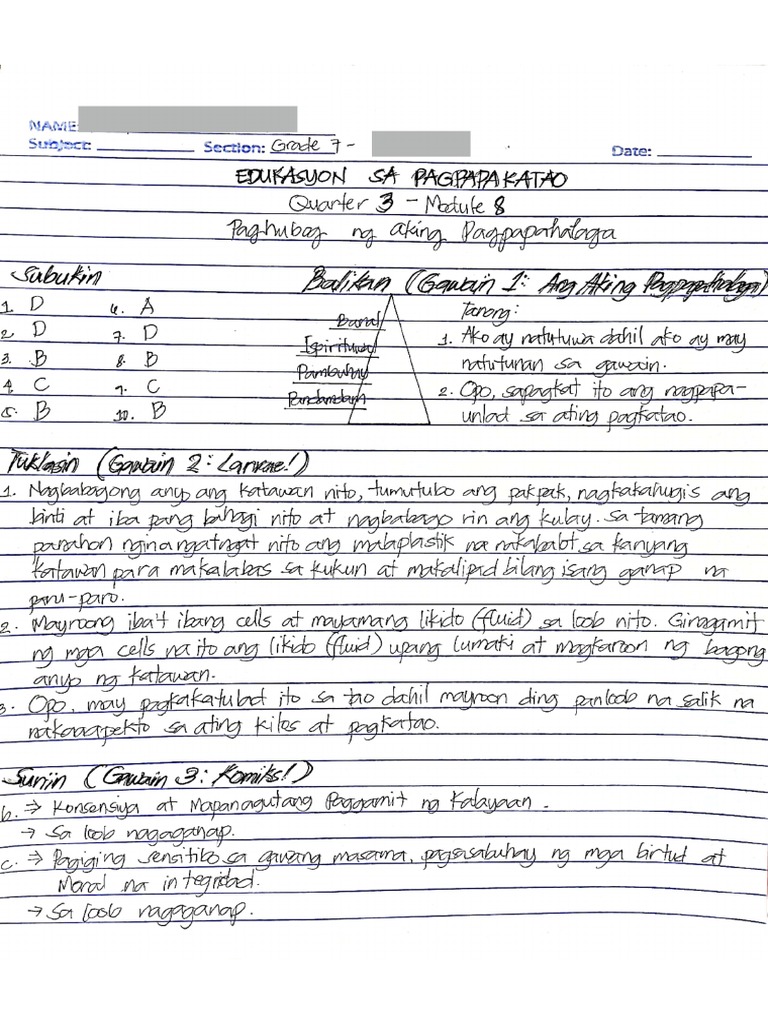 NAME:
Subject: Section: Grade 7 - Date:
EDUKASYON SA PAGPAPAKATAO
Quarter 3 - Module 8
Paghubog ng aking Pagpapahalaga
Subukin
1. D 6. A
2. D 7. D
3. B 8. B
4. C 9. C
5. B 10. B
Balikan (Gawain 1: Ang Aking Pagpapahalaga)
Banal
Ispiritwal
Pambuhay
Pandamdam
Tanong:
1. Ako ay natutuwa dahil ako ay may
natutunan sa gawain.
2. Opo, sapagkat ito ang nagpapa-
unlad sa ating pagkatao.
Tuklasin (Gawain 2: Larvae!)
1. Nagbabagong anyo ang katawan nito, tumutubo ang pakpak, nagkakahugis ang
binti at iba pang bahagi nito at nagbabago rin ang kulay. Sa tamang
panahon nginangatngat nito ang malaplastik na nakabalot sa kanyang
katawan para makalabas sa kukun at makalipad bilang isang ganap na
paru-paro.
2. Mayroong iba't ibang cells at mayamang likido (fluid) sa loob nito. Ginagamit
ng mga cells na ito ang likido (fluid) upang lumaki at magkaroon ng bagong
anyo ng katawan.
3. Opo, may pagkakatulad ito sa tao dahil mayroon ding panloob na salik na
nakaaapekto sa ating kilos at pagkatao.
Suriin (Gawain 3: Komiks!)
b. ⇒ Konsensiya at Mapanagutang Paggamit ng Kalayaan.
→ Sa loob nagaganap.
c. ⇒ Pagiging sensitibo sa gawang masama, pagsasabuhay ng mga birtud at
Moral na integridad.
→ Sa loob nagaganap.